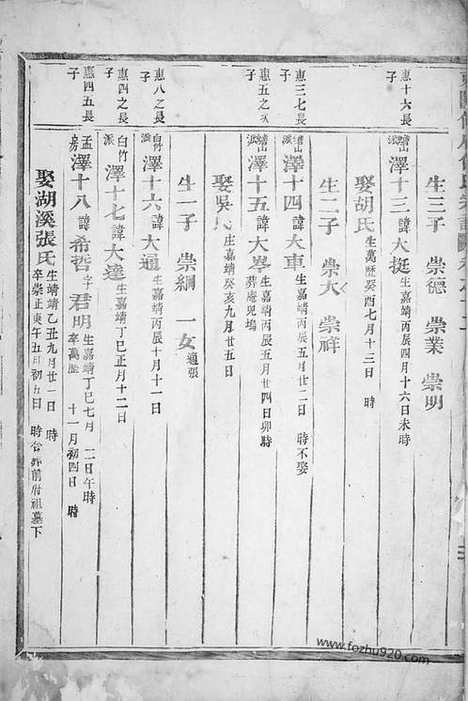 生三子 崇德 崇業 崇明
惠十六長子
澤十三諱大挺 生嘉靖丙辰四月十六日未時
娶胡氏 生萬歷癸酉七月十三日 時
生二子 崇大 崇祥
惠三七長子
澤十四諱大車 生嘉靖丙辰五月廿二日 時不娶
惠五之次子
澤十五諱大舉 生嘉靖丙辰五月廿四日卯時 葬處兒塢
娶吳氏 生嘉靖癸亥九月廿五日
生一子 崇綱 一女 適張
惠八之長子
澤十六諱大通 生嘉靖丙辰十月十一日
惠四之長子
白竹派
澤十七諱大達 生嘉靖丁巳正月十二日
惠四五長子
孟房
澤十八諱希哲 字君明 生嘉靖丁巳七月 二日午時 卒萬歷 十一月初四日 時
娶湖溪張氏 生嘉靖乙丑九月廿一日 時 卒崇正庚午五月初五日 時 前府祖墓下
www.fozhu920.com